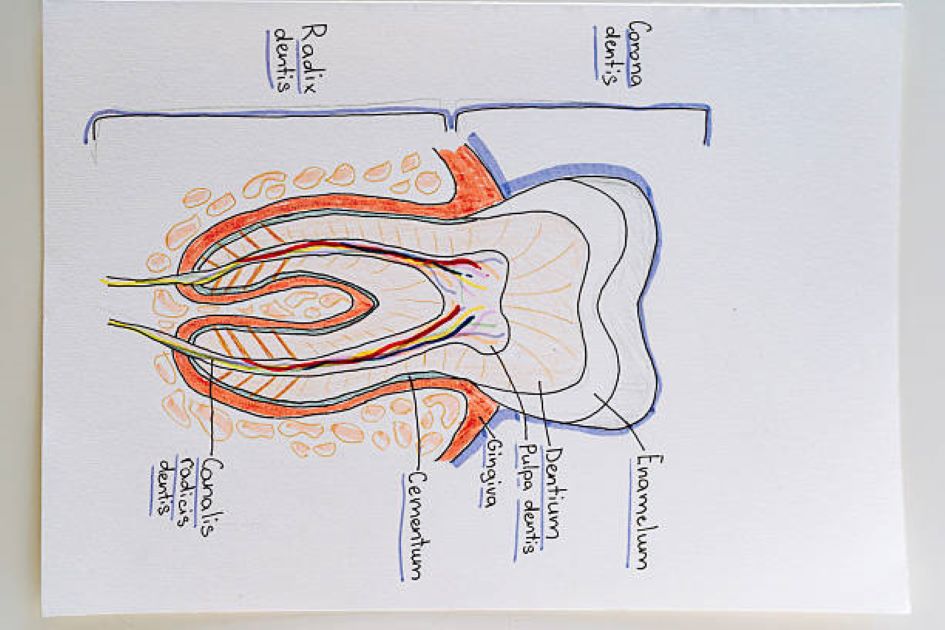 Corona
dentis
Radix
dentis
Enamelum
Dentium
Pulpa dentis
Gingiva
Cementum
Canalis
radicis
dentis